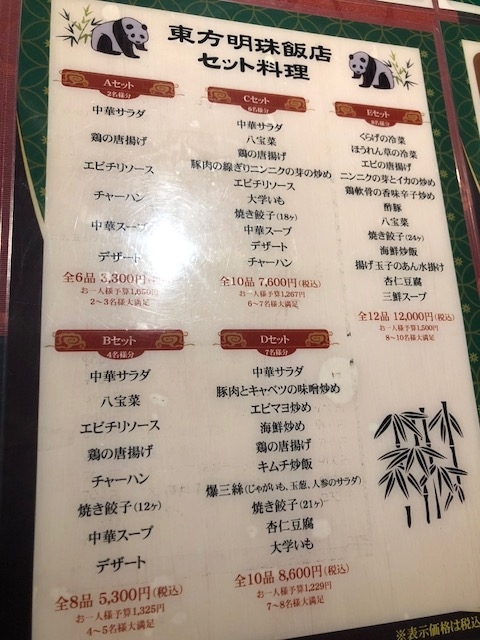 東方明珠飯店
セット料理
Aセット
2名様分
中華サラダ
鶏の唐揚げ
エビチリソース
チャーハン
中華スープ
デザート
全6品 3,300円
お一人様予算1,650円
2~3名様大満足
Bセット
4名様分
中華サラダ
八宝菜
エビチリソース
鶏の唐揚げ
チャーハン
焼き餃子(12ヶ)
中華スープ
デザート
全8品 5,300円(税込)
お一人様予算1,325円
4~5名様大満足
Cセット
6名様分
中華サラダ
八宝菜
鶏の唐揚げ
豚肉の線ぎりニンニクの芽の炒め
エビチリソース
大学いも
焼き餃子(18ヶ)
中華スープ
デザート
チャーハン
全10品 7,600円(税込)
お一人様予算1,267円
6~7名様大満足
Dセット
7名様分
中華サラダ
豚肉とキャベツの味噌炒め
エビマヨ炒め
海鮮炒め
鶏の唐揚げ
キムチ炒飯
爆三絲(じゃがいも、玉葱、人参のサラダ)
焼き餃子(21ヶ)
杏仁豆腐
大学いも
全10品 8,600円(税込)
お一人様予算1,229円
7~8名様大満足
Eセット
8名様分
くらげの冷菜
ほうれん草の冷菜
エビの唐揚げ
ニンニクの芽とイカの炒め
鶏軟骨の香味辛子炒め
酢豚
八宝菜
焼き餃子(24ヶ)
海鮮炒飯
揚げ玉子のあん水掛け
杏仁豆腐
三鮮スープ
全12品 12,000円(税込)
お一人様予算1,500円
8~10名様大満足
※表示価格は税込